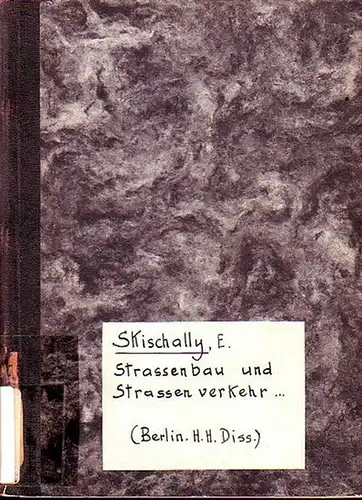 Skischally, E.
Strassenbau und
Strassenverkehr ...
(Berlin. H. H. Diss.)